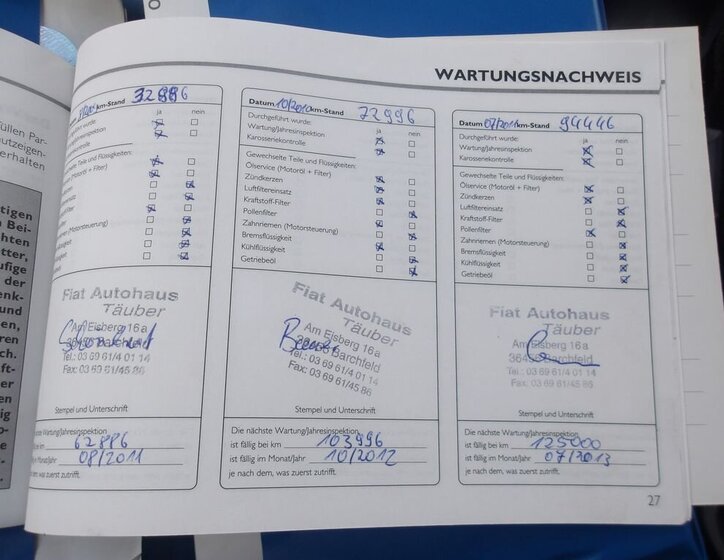 WARTUNGSNACHWEIS
km-Stand 32886
ja nein
wurde:
inspektion
kontrolle
Teile und Flüssigkeiten:
(Motoröl + Filter)
(Motorsteuerung)
Fiat Autohaus
Täuber
Am Eisberg 16a
36456 Barchfeld
Tel.: 03 69 61/4 01 14
Fax: 03 69 61/45 86
Stempel und Unterschrift
Die nächste Wartung/Jahresinspektion
62886
08/2011
je nach dem, was zuerst zutrifft.
Datum 10/2010 km-Stand 72996
Durchgeführt wurde: ja nein
Wartung/Jahresinspektion
Karossenekontrolle
Gewechselte Teile und Flüssigkeiten:
Ölservice (Motoröl + Filter)
Zündkerzen
Luftfiltereinsatz
Kraftstoff-Filter
Pollenfilter
Zahnriemen (Motorsteuerung)
Bremsflüssigkeit
Kühlflüssigkeit
Getriebeöl
Fiat Autohaus
Täuber
Am Eisberg 16a
36456 Barchfeld
Tel.: 03 69 61/4 01 14
Fax: 03 69 61/45 86
Stempel und Unterschrift
Die nächste Wartung/Jahresinspektion
ist fällig bei km 103996
ist fällig im Monat/Jahr 10/2012
je nach dem, was zuerst zutrifft.
Datum 07/2011 km-Stand 94446
Durchgeführt wurde: ja nein
Wartung/Jahresinspektion
Karossenekontrolle
Gewechselte Teile und Flüssigkeiten:
Ölservice (Motoröl + Filter)
Zündkerzen
Luftfiltereinsatz
Kraftstoff-Filter
Pollenfilter
Zahnriemen (Motorsteuerung)
Bremsflüssigkeit
Kühlflüssigkeit
Getriebeöl
Fiat Autohaus
Täuber
Am Eisberg 16a
36456 Barchfeld
Tel.: 03 69 61/4 01 14
Fax: 03 69 61/45 86
Stempel und Unterschrift
Die nächste Wartung/Jahresinspektion
ist fällig bei km 125000
ist fällig im Monat/Jahr 07/2013
je nach dem, was zuerst zutrifft.
27